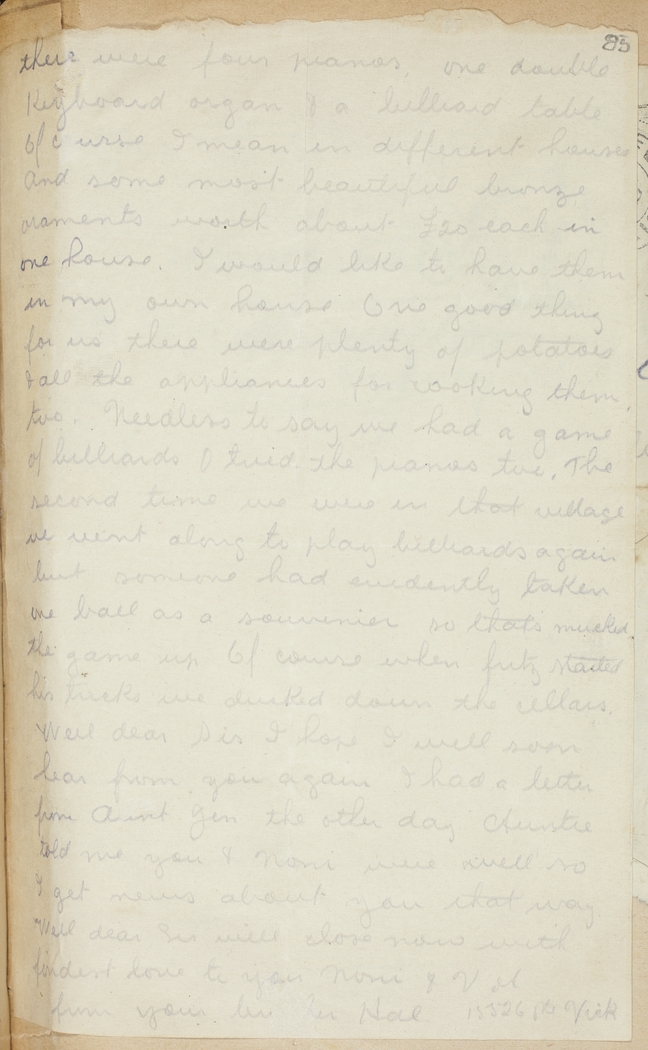 85
there were four pianos, one double
Keyboard organ & a billiard table
Of course I mean in different houses
And some most beautiful bronze
oraments worth about £20 each in
one house. I would like to have them
in my own house One good thing
for us there were plenty of potatoes
& all the appliances for cooking them,
too. Needless to say we had a game
of billiards & tried the pianos too. The
second time we were in that village
we went along to play billiards again
but someone had evidently taken
one ball as a souvenier so thats mucked
the game up Of course when fritz started
his tricks we ducked down the cellars.
Well dear Sis I hope I will soon
hear from you again I had a letter
from Aunt Jen the other day Auntie
told me you & Noni were well so
I get news about you that way
Well dear Sis will close now with
fondest love to you Noni & V
from your Hal 15326 Pte Vick